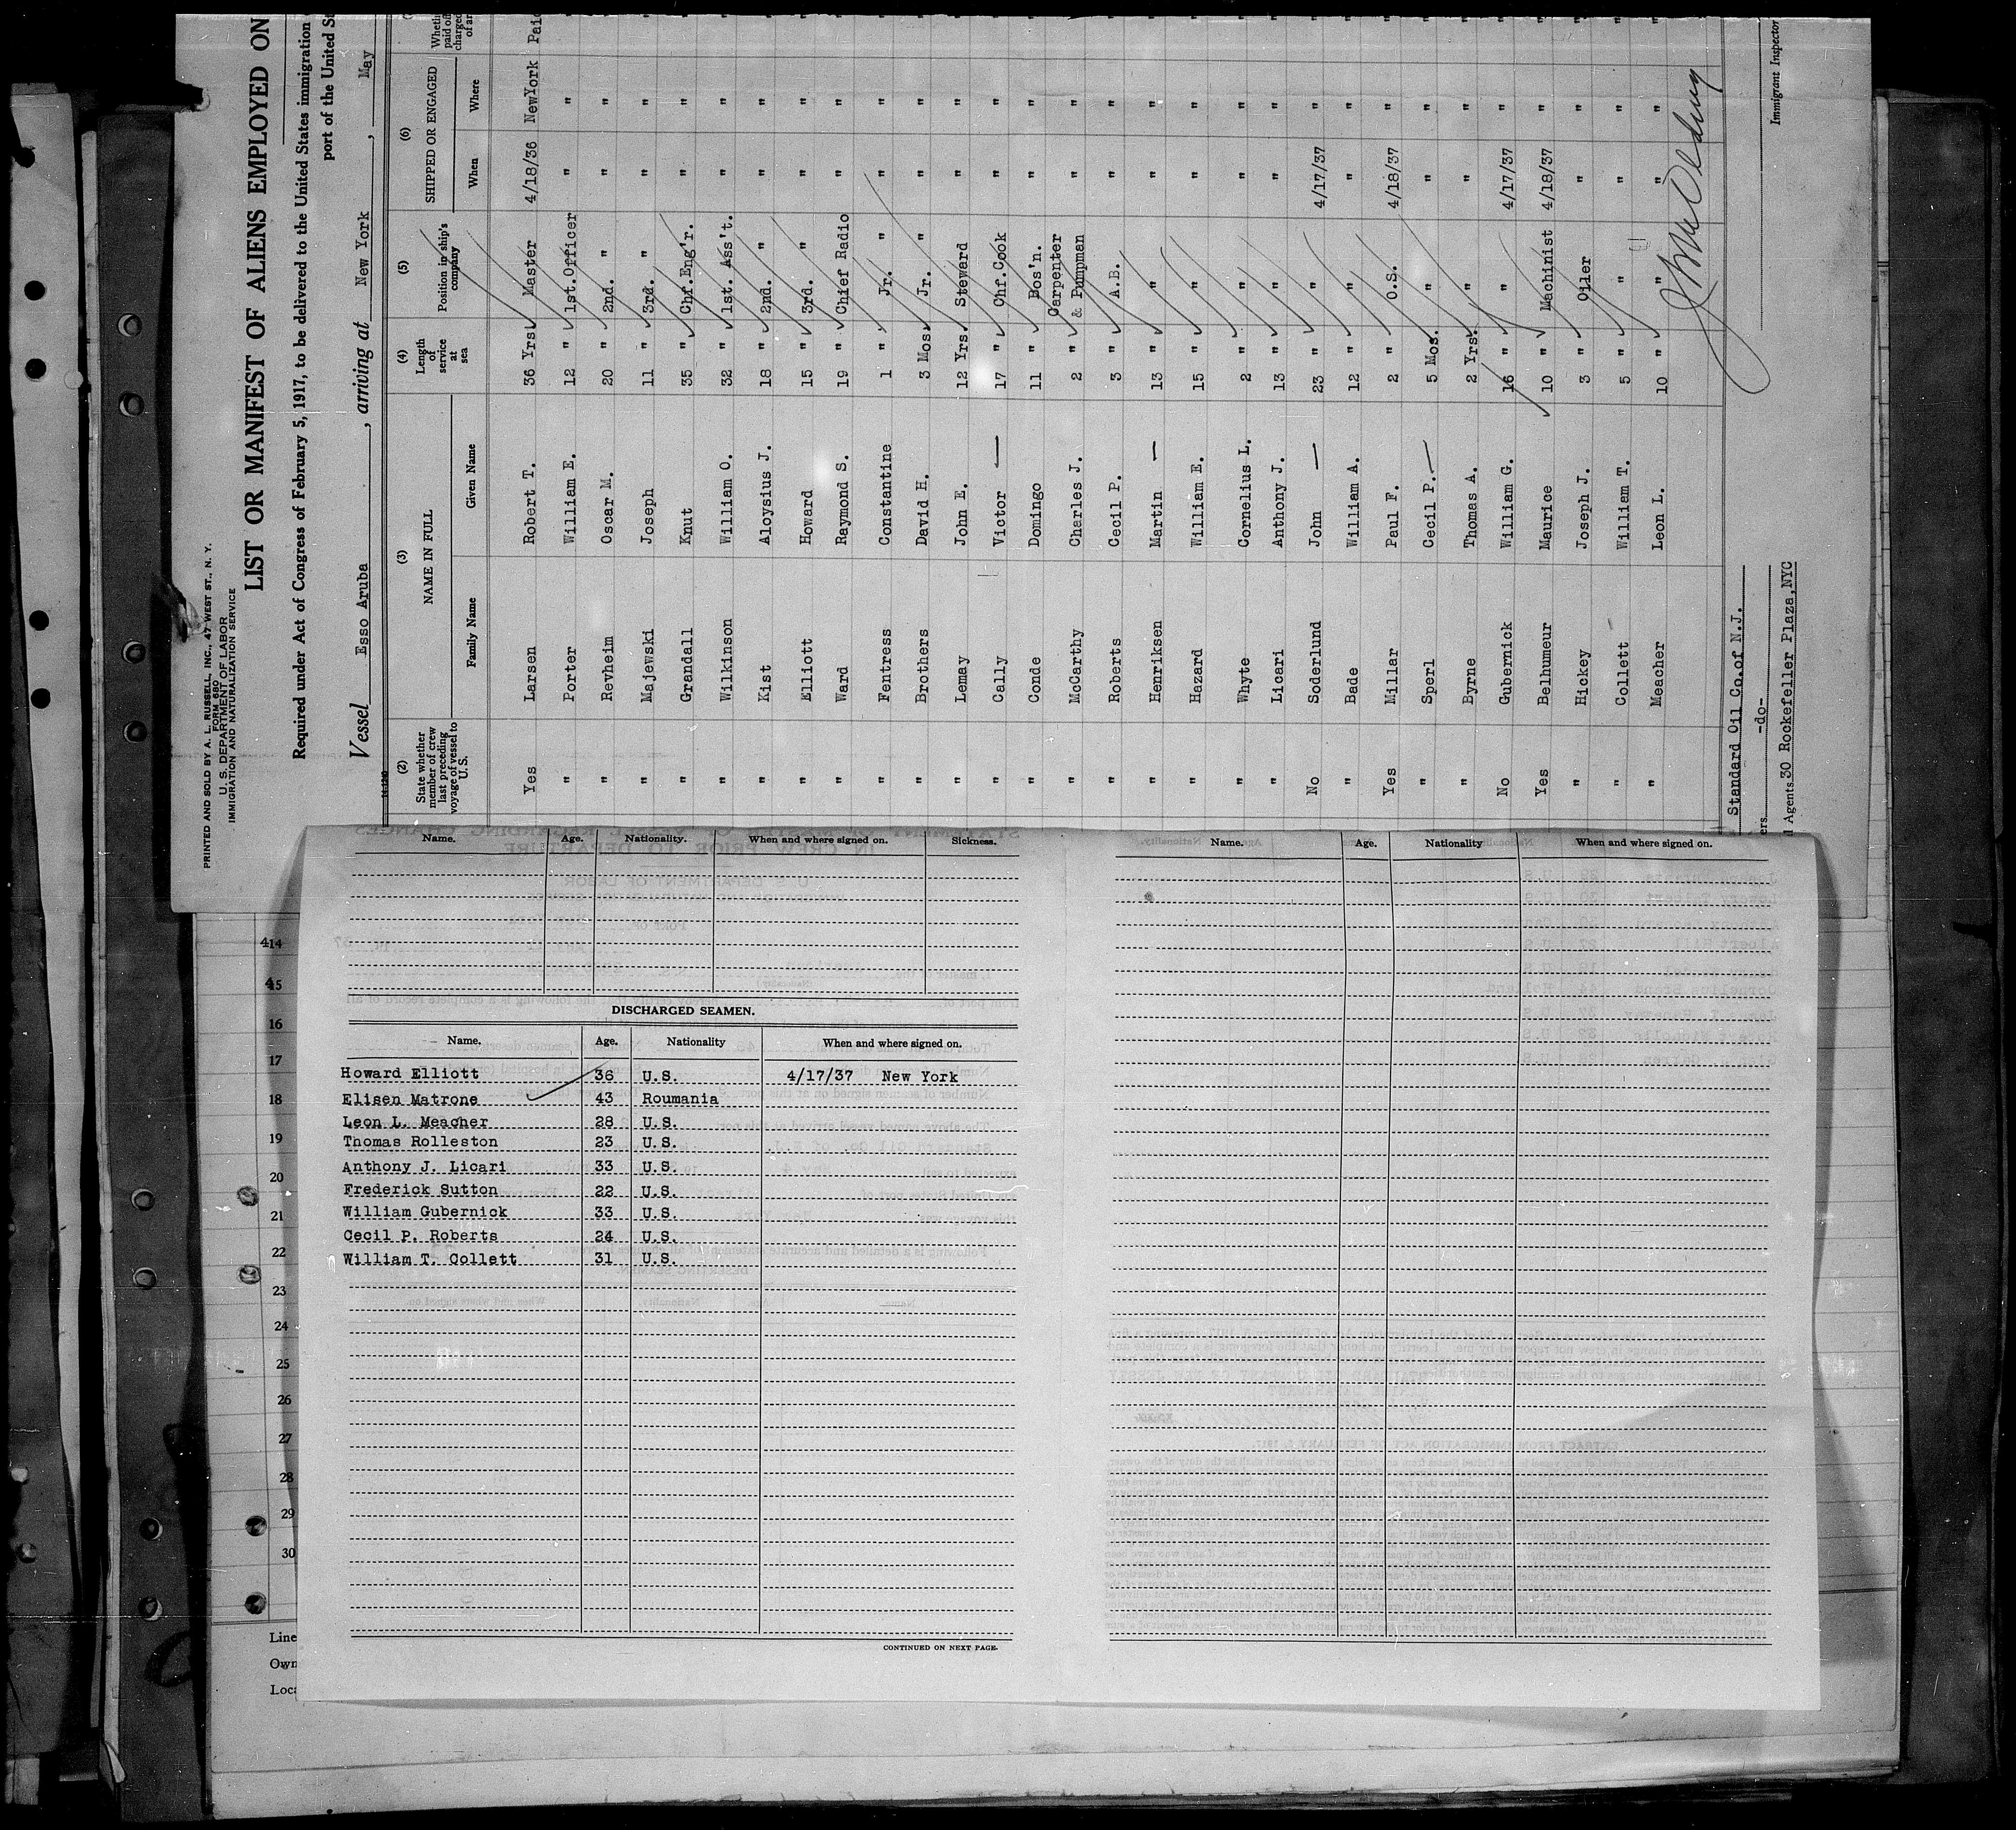 PRINTED AND SOLD BY A. L. RUSSELL, INC., 47 WEST ST., N. Y.
FORM 680
U. S. DEPARTMENT OF LABOR
IMMIGRATION AND NATURALIZATION SERVICE
LIST OR MANIFEST OF ALIENS EMPLOYED ON
Required under Act of Congress of February 5, 1917, to be delivered to the United States immigration
port of the United St
Vessel Esso Aruba , arriving at New York , May
(2) State whether member of crew last preceding voyage of vessel to U.S.
(3) NAME IN FULL
Family Name Given Name
(4) Length of service at sea
(5) Position in ship's company
(6) SHIPPED OR ENGAGED
When Where
Yes Larsen Robert T. 36 Yrs. Master 4/18/36 NewYork Paid
" Porter William E. 12 " 1st.Officer " "
" Revheim Oscar M. 20 " 2nd. " " "
" Majewski Joseph 11 " 3rd. " " "
" Grandall Knut 35 " Chf.Eng'r. " "
" Wilkinson William O. 32 " 1st. Ass't. " "
" Kist Aloysius J. 18 " 2nd. " " "
" Elliott Howard 15 " 3rd. " " "
" Ward Raymond S. 19 " Chief Radio " "
" Fentress Constantine 1 " Jr. " " "
" Brothers David H. 3 Mos. Jr. " " "
" Lemay John E. 12 Yrs. Steward " "
" Cally Victor — 17 " Chf.Cook " "
" Conde Domingo 11 " Bos'n. " "
" McCarthy Charles J. 2 " Carpenter & Pumpman " "
" Roberts Cecil P. 3 " A.B. " "
" Henriksen Martin — 13 " " " "
" Hazard William E. 15 " " " "
" Whyte Cornelius L. 2 " " " "
" Licari Anthony J. 13 " " " "
No Soderlund John — 23 " " 4/17/37 "
" Bade William A. 12 " " " "
Yes Millar Paul F. 2 " O.S. 4/18/37 "
" Sperl Cecil P. — 5 Mos. " " "
" Byrne Thomas A. 2 Yrs. " " "
No Gubernick William G. 16 " " 4/17/37 "
Yes Belhumeur Maurice 10 " Machinist 4/18/37 "
" Hickey Joseph J. 3 " Oiler " "
" Collett William T. 5 " " " "
" Meacher Leon L. 10 " " " "
Standard Oil Co.of N.J.
ers. -do-
d Agents 30 Rockefeller Plaza,NYC
Immigrant Inspector
Name. Age. Nationality. When and where signed on. Sickness.
DISCHARGED SEAMEN.
Name. Age. Nationality When and where signed on.
Howard Elliott 36 U.S. 4/17/37 New York
Elisen Matrone 43 Roumania
Leon L. Meacher 28 U.S.
Thomas Rolleston 23 U.S.
Anthony J. Licari 33 U.S.
Frederick Sutton 22 U.S.
William Gubernick 33 U.S.
Cecil P. Roberts 24 U.S.
William T. Collett 31 U.S.
CONTINUED ON NEXT PAGE.
Name. Age. Nationality When and where signed on.
14
15
16
17
18
19
20
21
22
23
24
25
26
27
28
29
30
Line
Own
Loca